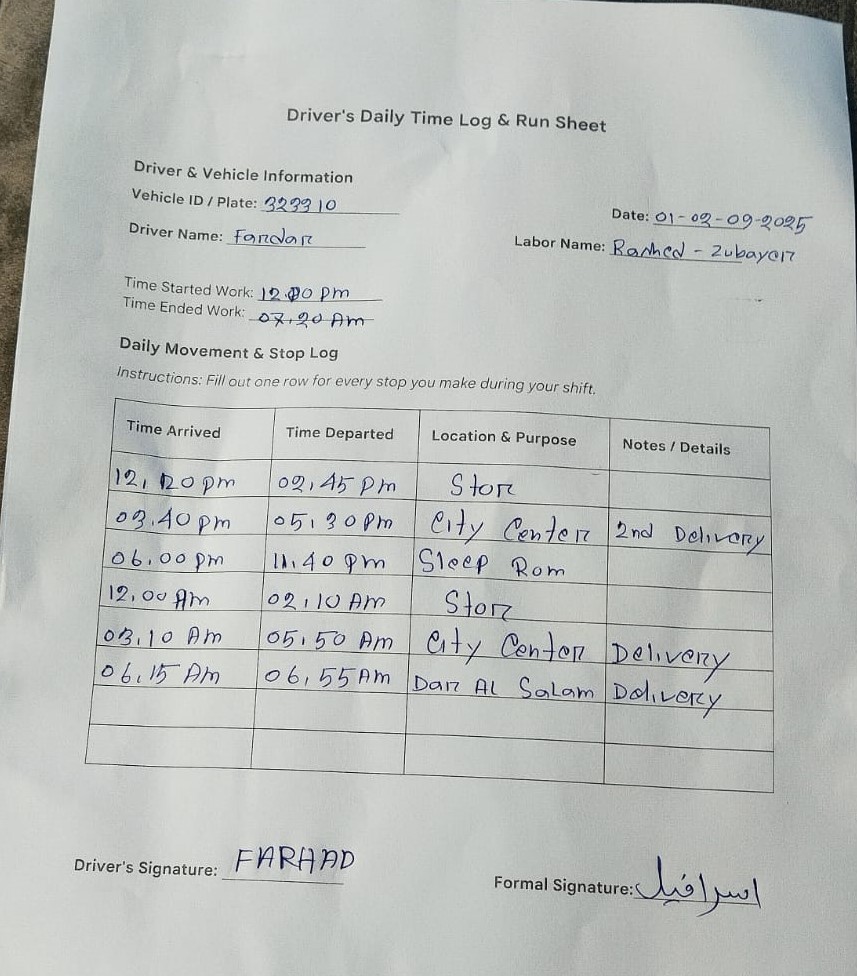 Driver's Daily Time Log & Run Sheet
Driver & Vehicle Information
Vehicle ID / Plate: 323310
Date: 01-02-09-2025
Driver Name: Fardar
Labor Name: Rashed - Zubayer
Time Started Work: 12.00 pm
Time Ended Work: 07.20 Am
Daily Movement & Stop Log
Instructions: Fill out one row for every stop you make during your shift.
Time Arrived Time Departed Location & Purpose Notes / Details
12,20 pm 02,45 pm Stor
03.40 pm 05,30 pm City Center 2nd Delivery
06.00 pm 11.40 pm Sleep Rom
12.00 Am 02,10 AM Stor
03.10 Am 05,50 Am City Center Delivery
06.15 Am 06,55 AM Dar AL Salam Delivery
Driver's Signature: FARHAD
Formal Signature: اسرافيل